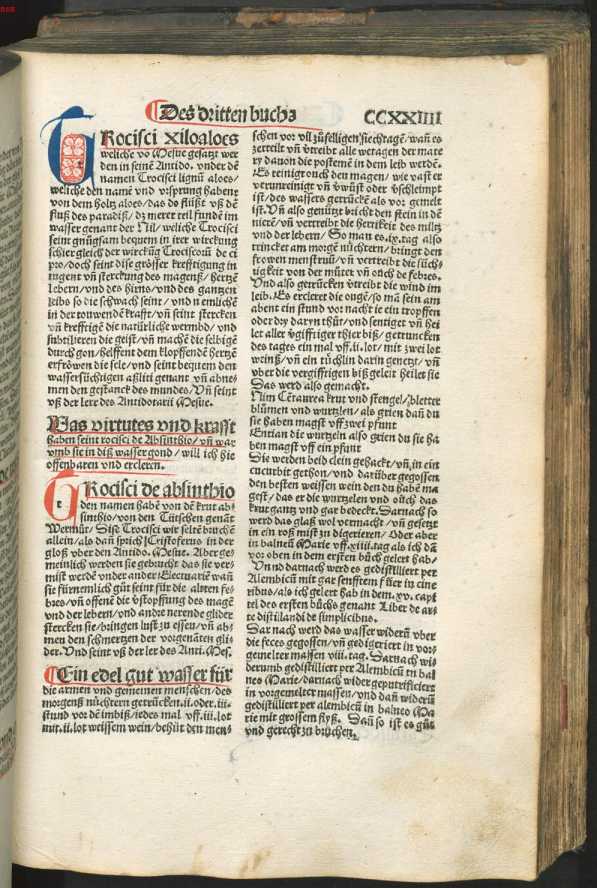 Des dritten buchs
CCXXIIII
TRocisci xiloaloes
weliche vō Mesue gesatzt wer
den in seinē Antido. vnder dē
namen Trocisci lignū aloes/
weliche den namē vnd vrsprung habent
von dem holtz aloes/das do flüßt vß dē
fluß des paradiß/dz merer teil fundē im
wasser genant der Nil/weliche Trocisci
seint gnůgsam bequem in irer wirckung
schier gleich der wirckūg Trociscorū de ci
pro/doch seint dise grösser krefftigung in
tugent vñ sterckung des magenß/hertzē
lebern/vnd des hirns/vnd des gantzen
leibs so die schwach seint/vnd n emlichē
in der touwendē krafft/vñ seint stercken
vñ krefftigē die natürliche wermbd/vnd
subtilieren die geist/vñ machē die selbigē
durch gon/helffent dem klopffendē hertzē
erfröwen die sele/vnd seint bequem den
wassersüchtigen aßliti genant vñ abne-
men den gestanck des mundes/Vñ seint
vß der lere des Antidotarii Mesue.
Was virtutes vnd krafft
haben seint rocisci de Absinthio/vñ war
vmb sie in diß wasser gond/will ich hie
offenbaren vnd ercleren.
TRocisci de absinthio
den namen habē von dē krut ab-
sinthio/von den Tütschen genāt
Wermůt/Dise Trocisci wir seltē bruchē
allein/als dañ sprich Cristoferus in der
gloß vber den Antido. Mesue. Aber ge-
meinlich werden sie gebrucht das sie ver-
mist werdē vnder ander Electuariē wañ
sie fürnemlich gůt seint für die alten fe-
bres/vñ offenē die vstopffung des magē
vnd der lebern/vnd andre nerende glider
stercken sie/bringen lust zů essen/vñ ab-
men den schmertzen der vorgenāten gli-
der. Vnd seint vß der ler des Anti. Mes.
Ein edel gut wasser für
die armen vnd gemeinen menschen/des
morgenß nüchtern getrücken.ii.oder.iii.
stund vor dē imbiß/iedes mal vff.iii.lot
mit.ii.lot weissem wein/behüt den men-
schen vor vil zůfelligen siechtagē/wañ es
zerteilt vñ vtreibt alle wetagen der mate
ry dauon die postemē in dem leib werdē.
Es reinigt ouch den magen/wie vast er
verunreinigt vñ vwüst oder vschleimpt
ist/des wassers getrückē als vor gemelt
ist. Vñ also genützt bricht den stein in dē
nierē/vñ vertreibt die herrikeit des miltz
vnd der lebern/So man es.ix.tag also
trincket am morgē nüchtern/bringt den
frowen menstruū/vñ vertreibt die süch-
tigkeit von der můter vñ ouch de febres.
Vnd also getrücken vtreibt die wind im
leib. Es ercleret die ougē/so mā sein am
abent ein stund vor nacht ie ein tropffen
oder dry daryn thůt/vnd senftiget vñ hei
let aller vgifftiger thier biß/getruncken
des tages ein mal vff.ii.lot/mit zwei lot
weinß/vñ ein tüchlin darin genetzt/vñ
vber die vergifftigen biß geleit heilet sie
Das werd also gemacht.
Nim Cētaurea krut vnd stengel/bletter
blůmen vnd wurtzlen/als grien dañ du
sie haben magst vff zwei pfunt
Entian die wurtzeln also grien du sie ha
ben magst vff ein pfunt
Die werden beid clein gehackt/vñ in ein
cucurbit gethon/vnd darüber gegossen
den besten weissen wein den du habē ma
gest/das er die wurtzelen vnd ouch das
krut gantz vnd gar bedeckt. Darnach so
werd das glaß wol vermacht/vñ gesetzt
in ein roß mist zů digerierē/Oder aber
in balneū Marie vff.xiiii.tag als ich dā
vor oben in dem ersten bůch gelert hab/
Vnnd darnach werd es gedistilliert per
Alembicū mit gar senfftem fier in cine
ribus/als ich gelert hab in dem.xv.capi
tel des ersten bůchs genant Liber de ar-
te distilandi de simplicibus.
Dar nach werd das wasser widerū vber
die feces gegossen/vñ gedigeriert in vor-
gemelter massen viii.tag. Darnach wi-
derumb gedistilliert per Alembicū in bal
neo Marie/darnach wider geputrificiert
in vorgemelter massen/vnd dañ widerū
gedistilliert per alembicū in balneo Ma
rie mit grossem flyß. Dañ so ist es gůt
vnd gerecht zů bruchen.